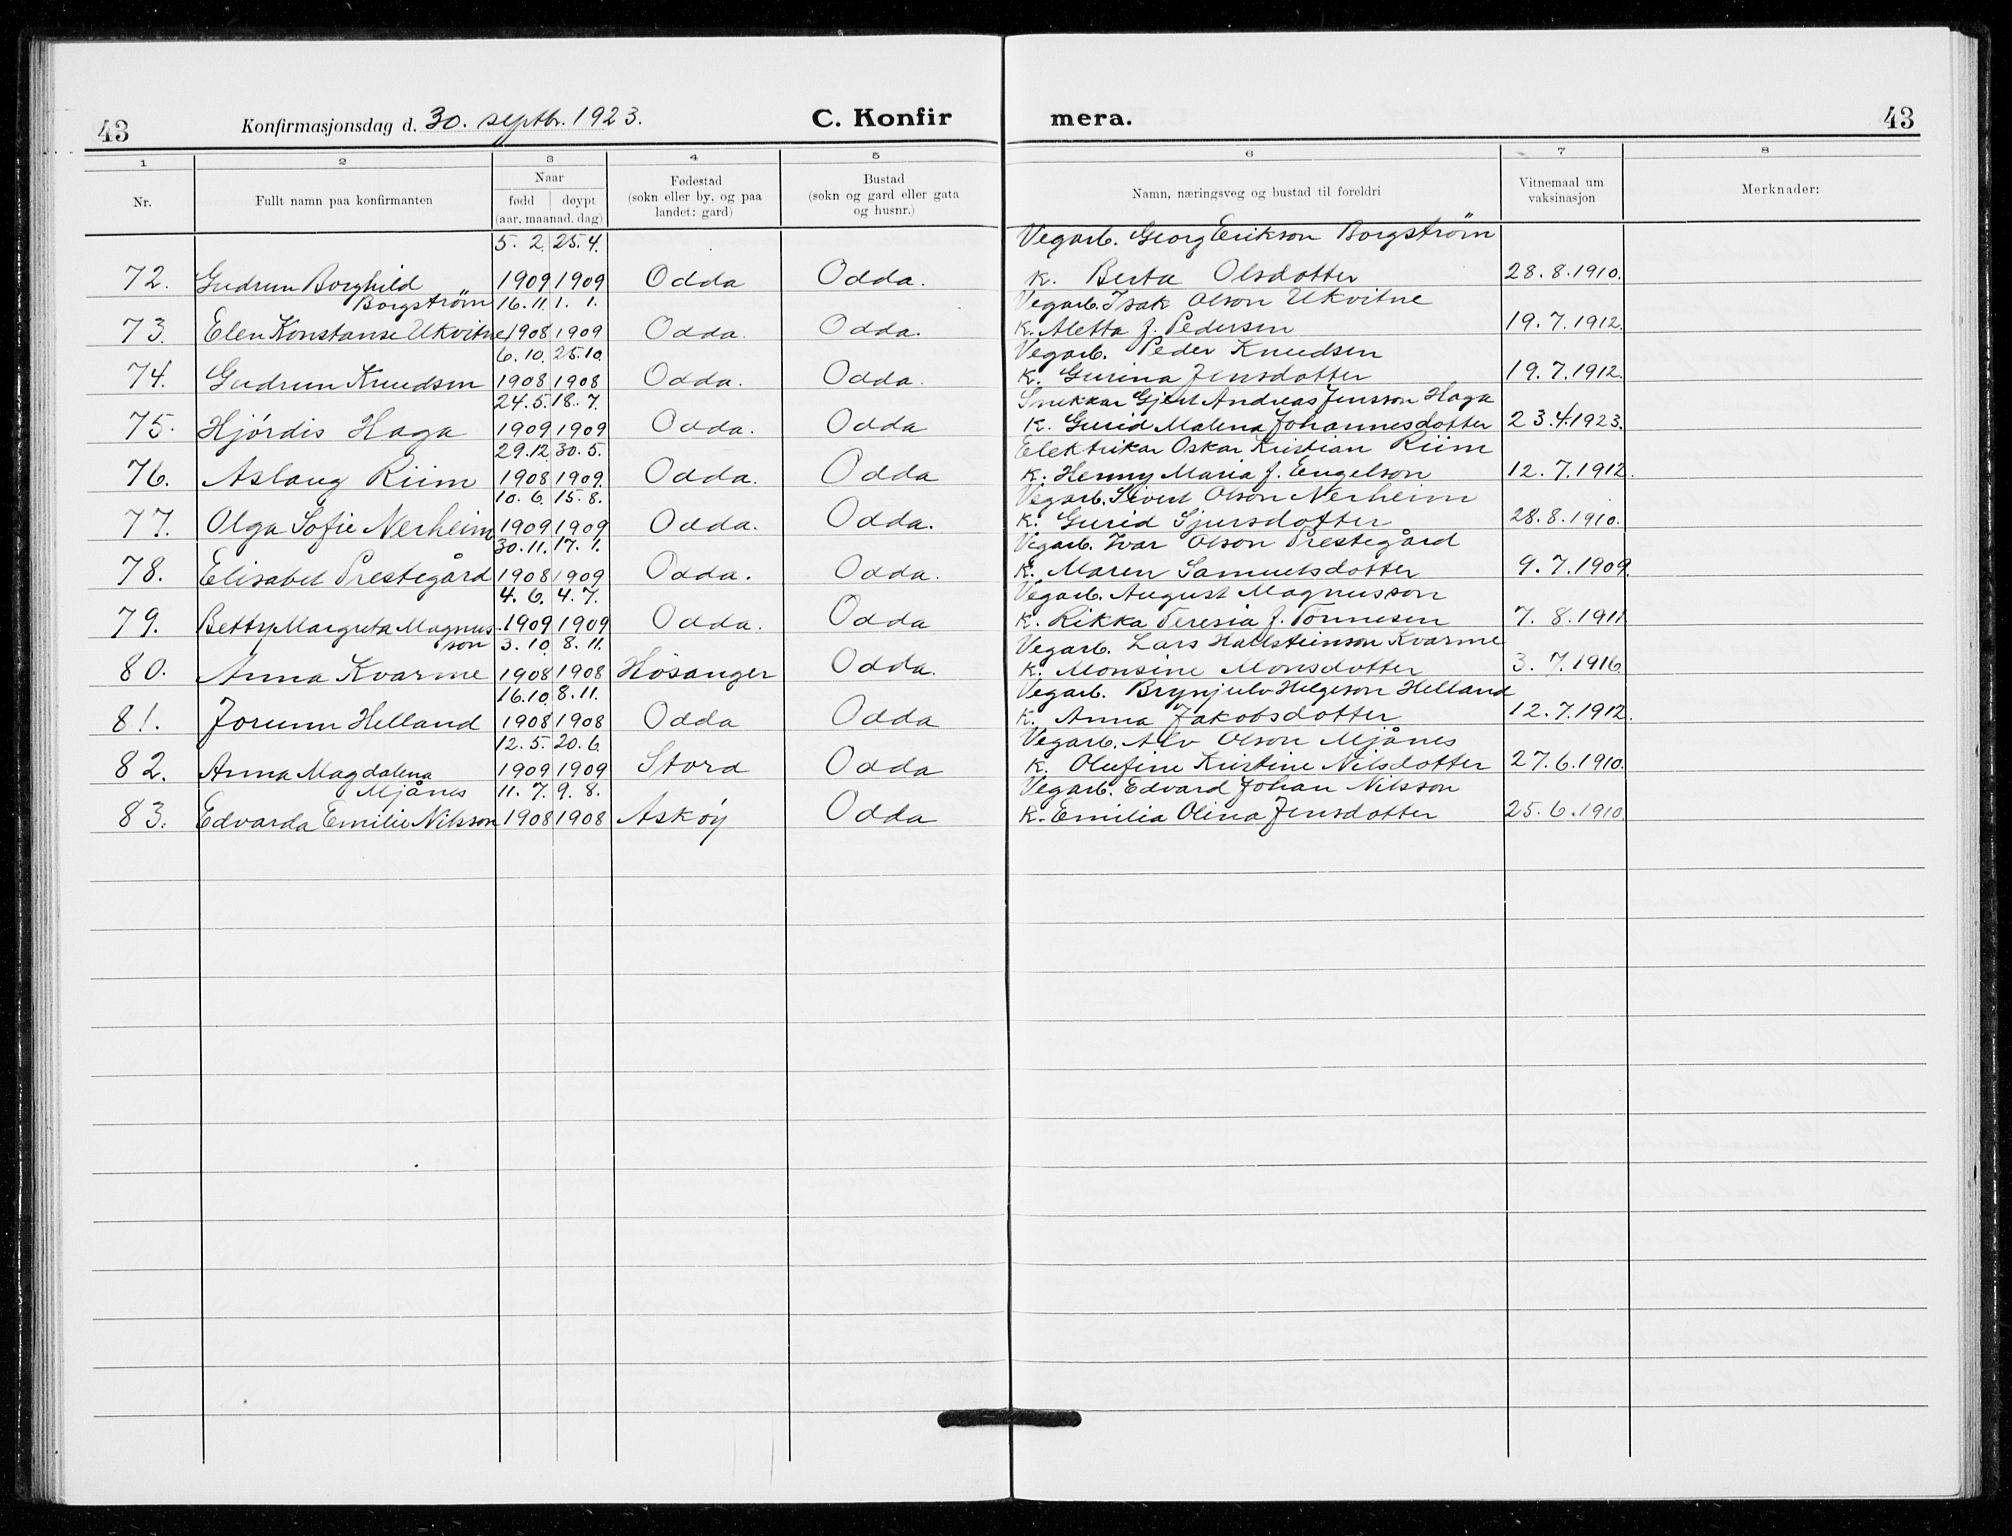 43 Konfirmasjonsdag d. 30. septbr. 1923. C. Konfir mera. 43
1 2 3 4 5 6 7 8
Nr. Fullt namn paa konfirmanten Naar fødd døypt (aar, maanad, dag) Fødestad (sokn eller by, og paa landet: gard) Bustad (sokn og gard eller gata og husnr.) Namn, næringsveg og bustad til foreldri Vitnemaal um vaksinasjon Merknader:
5. 2. 25. 4. Vegarb. Georg Erikson Borgström
72. Gudrun Borghild 1909 1909 Odda Odda. K. Berta Olsdotter 28. 8. 1910.
Borgström 16. 11. 1. 1. Vegarb. Isak Olson Utkvitne
73. Elen Konstanse Utkvitne 1908 1909 Odda. Odda. K. Aletta f. Pedersen 19. 7. 1912.
6. 10. 25. 10. Vegarb. Peder Knudsen
74. Gudrun Knudsen 1908 1908 Odda. Odda. K. Gurina Jensdotter 19. 7. 1912.
24. 5. 18. 7. Snekkar Gjert Andreas Jensson Haga
75. Hjördis Haga 1909 1909 Odda. Odda K. Gurid Malena Johannesdotter 23. 4. 1923.
29. 12. 30. 5. Elektrikar Oskar Kristian Riim
76. Aslaug Riim 1908 1909. Odda. Odda K. Henny Maria f. Engelson 12. 7. 1912.
10. 6. 15. 8. Vegarb. Sivert Olson Nerheim
77. Olga Sofie Nerheim 1909 1909 Odda. Odda. K. Gurid Sjursdotter 28. 8. 1910.
30. 11. 17. 1. Vegarb. Ivar Olson Prestegård
78. Elisabet Prestegård 1908 1909 Odda. Odda. K. Maren Samuelsdotter 9. 7. 1909.
4. 6. 4. 7. Vegarb. August Magnusson
79. Betty Margreta Magnus- 1909 1909 Odda. Odda K. Rikka Teresia f. Tönnesen 7. 8. 1911.
son 3. 10. 8. 11. Vegarb. Lars Hallsteinson Kvarme
80. Anna Kvarme 1908 1908 Hosanger Odda. K. Monsine Monsdotter 3. 7. 1916.
16. 10. 8. 11. Vegarb. Brynjulv Helgeson Helland
81. Jorunn Helland 1908 1908 Odda Odda K. Anna Jakobsdotter 12. 7. 1912.
12. 5. 20. 6. Vegarb. Alv Olson Mjånes
82. Anna Magdalena 1909 1909 Stord Odda K. Olufine Kristine Nilsdotter 27. 6. 1910.
Mjånes 11. 7. 9. 8. Vegarb. Edvard Johan Nilsson
83. Edvarda Emilie Nilsson 1908 1908 Askøy Odda K. Emilia Olina Jensdotter 25. 6. 1910.